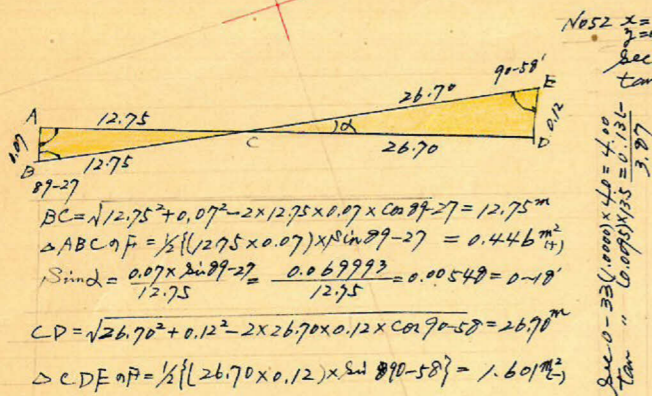 No52 x=
y=
Sec
tan
A
12.75
C
26.70
90-58'
E
0.12
D
26.70
α
0.07
B
12.75
89-27
BC=√12.75²+0.07²-2×12.75×0.07×Cos89-27 = 12.75ᵐ
△ABCのF=½{(12.75×0.07)×Sin89-27 = 0.446m²(+)
Sinα= 0.07×Sin89-27/12.75 = 0.069993/12.75 =0.00548=0-18'
CD=√26.70²+0.12²-2×26.70×0.12×Cos90-58=26.70ᵐ
△CDEのF=½{(26.70×0.12)×Sin 90-58}= 1.601m²(-)
Sec 0-33(1.0000)×4.0=4.00
tan 〃 (0.0095)×13.5=0.13(-
3.87